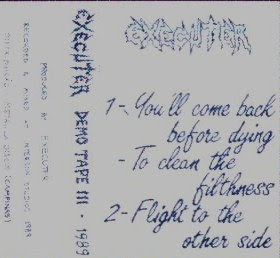 EXECUTER
1- You'll come back
before dying
- To clean the
filthness
2- Flight to the
other side
EXECUTER DEMO TAPE III - 1989
PRODUCED BY EXECUTER
RECORDED & MIXED AT INTERSOM STUDIOS 1989
(CAMPINAS)